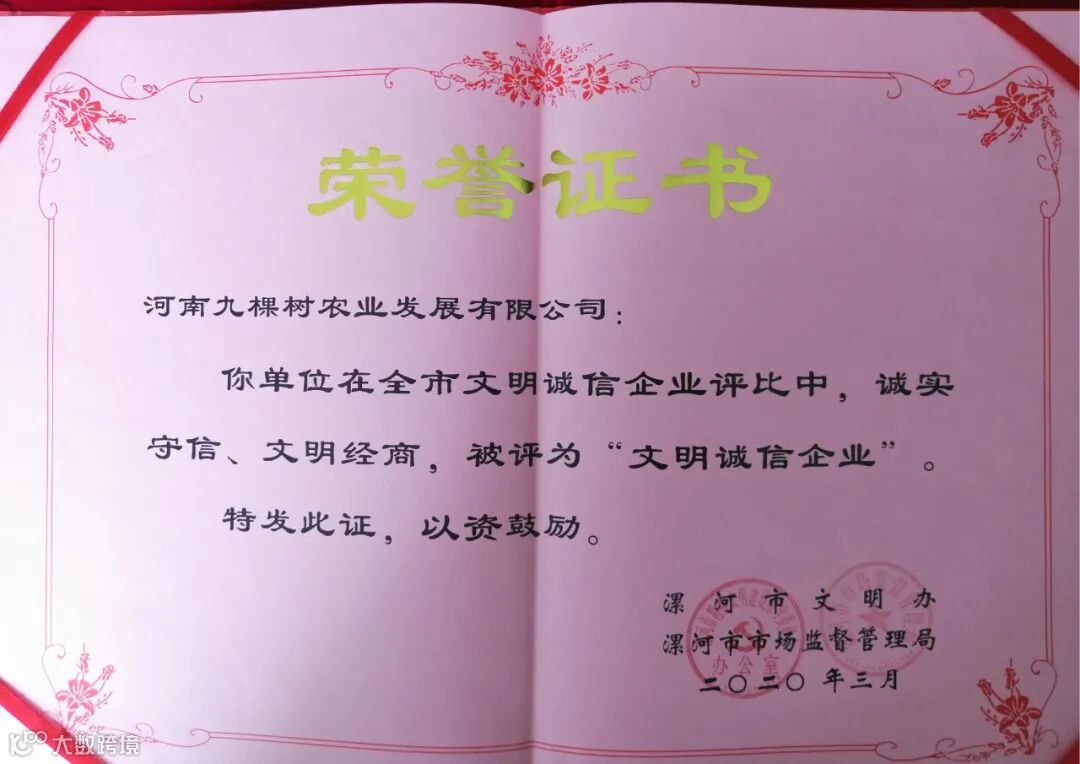 荣誉证书
河南九棵树农业发展有限公司：
你单位在全市文明诚信企业评比中，诚实
守信、文明经商，被评为“文明诚信企业”。
特发此证，以资鼓励。
漯河市文明办
漯河市市场监督管理局
办公室
二〇二〇年三月
大数跨境